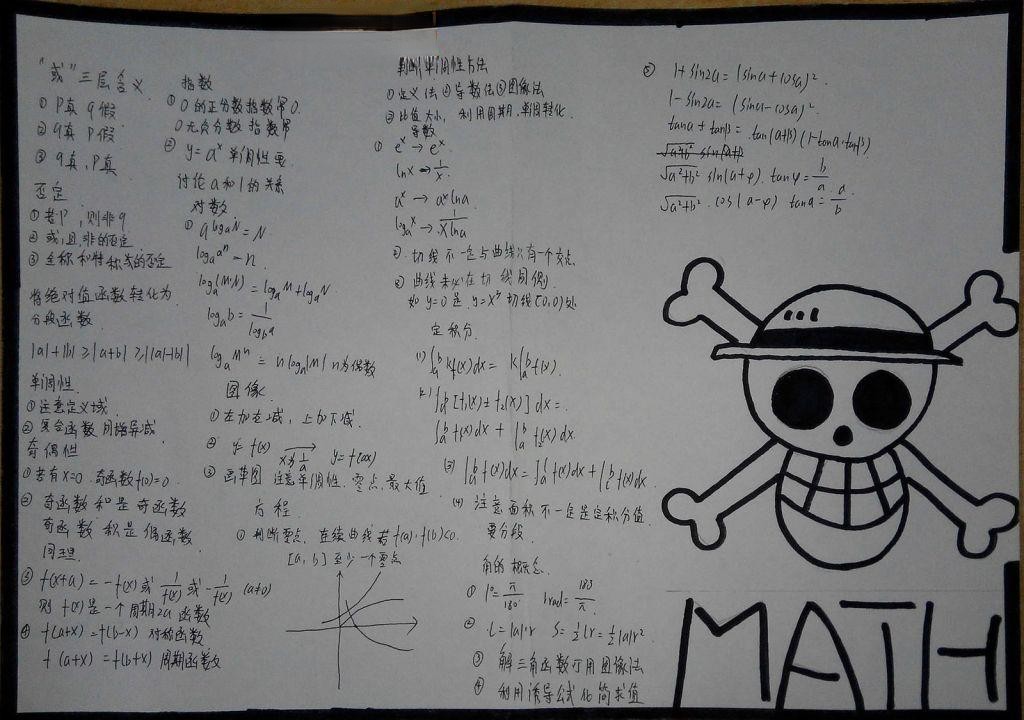 "或"三层含义
① P真 q假
② q真 P假
③ q真,P真
否定
① 若P,则非q
② 或,且,非的否定
③ 全称和特称或的否定
将绝对值函数转化为
分段函数
|a|+|b|≥|a+b|≥||a|-|b||
单调性
① 注意定义域
② 复合函数 同增异减
奇偶性
① 若有x=0 奇函数f(0)=0
② 奇函数和是奇函数
奇函数积是偶函数
同理
③ f(x+a)=-f(x)或 1/f(x) 或 -1/f(x) (a≠0)
则f(x)是一个周期2a函数
④ f(a+x)=f(b-x) 对称函数
f(a+x)=f(b+x) 周期函数
指数
① 0的正分数指数幂0
0无负分数指数幂
② y=a^x 单调性要
讨论a和1的关系
对数
① a^(log_a N)=N
log_a a^n=n
log_a(M·N)=log_a M+log_a N
log_a b=1/log_b a
log_a M^n=n log_a|M| n为偶数
图像
① 左加右减,上加下减
② y=f(x) → y=f(ax)
x为1/a
③ 画草图 注意单调性、零点、最大值
方程
① 判断零点,连续曲线若f(a)·f(b)<0
[a,b]至少一个零点
判断单调性方法
① 定义法 ② 导数法 ③ 图像法
② 比值大小,利用周期,单调转化
导数
① e^x → e^x
lnx → 1/x
a^x → a^x lna
log_a x → 1/xlna
② 切线不一定与曲线只有一个交点
② 曲线未必在切线同侧
如y=0是y=x³切线(0,0)处
定积分
(1) ∫_a^b kf(x)dx= k∫_a^b f(x).
(2) ∫_a^b [f₁(x)±f₂(x)]dx=
∫_a^b f(x)dx+∫_a^b f₂(x)dx.
(3) ∫_a^b f(x)dx=∫_a^c f(x)dx+∫_c^b f(x)dx
(4) 注意面积不一定是定积分值
要分段
角的概念
① 1°=π/180° 1rad=180/π
② l=|a|·r S=½lr=½|a|r²
③ 解三角函数可用图像法
④ 利用诱导公式化简求值
⑤ 1+sin2a=(sina+cosa)²
1-sin2a=(sina-cosa)²
tana+tanβ=tan(a+β)(1-tana·tanβ)
√a²+b² sin(a+φ). tanφ=b/a
√a²+b². cos(a-φ) tana=a/b
MATH